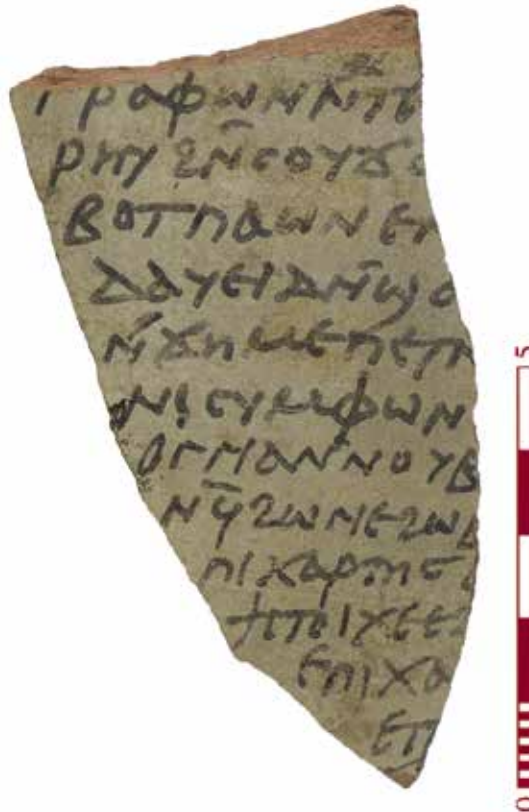 ⲅⲣⲁⲫⲱⲛ ⲛ̅ⲧⲉ
ⲣⲏⲩ ϩⲛ̅ⲥⲟⲩϫⲟ
ⲃⲟⲧ ⲡⲁⲱⲛⲉ
ⲇⲁⲩⲉⲓⲇ ⲛ̅ϣⲟ
ⲛ̅ϫⲏⲙⲉ ⲡⲉⲧⲛ
ⲛⲓⲥⲩⲙⲫⲱⲛ
ⲟⲅⲅⲓⲁ ⲛ̅ⲛⲟⲩⲃ
ⲛϥ̅ϩⲱⲛ ⲉϩⲱⲃ
ⲡⲓⲭⲁⲣⲧⲏⲥ
ϯⲥⲧⲓⲭⲉ ⲉ
ⲉⲡⲓⲭⲁ
ⲉⲡ
5
0